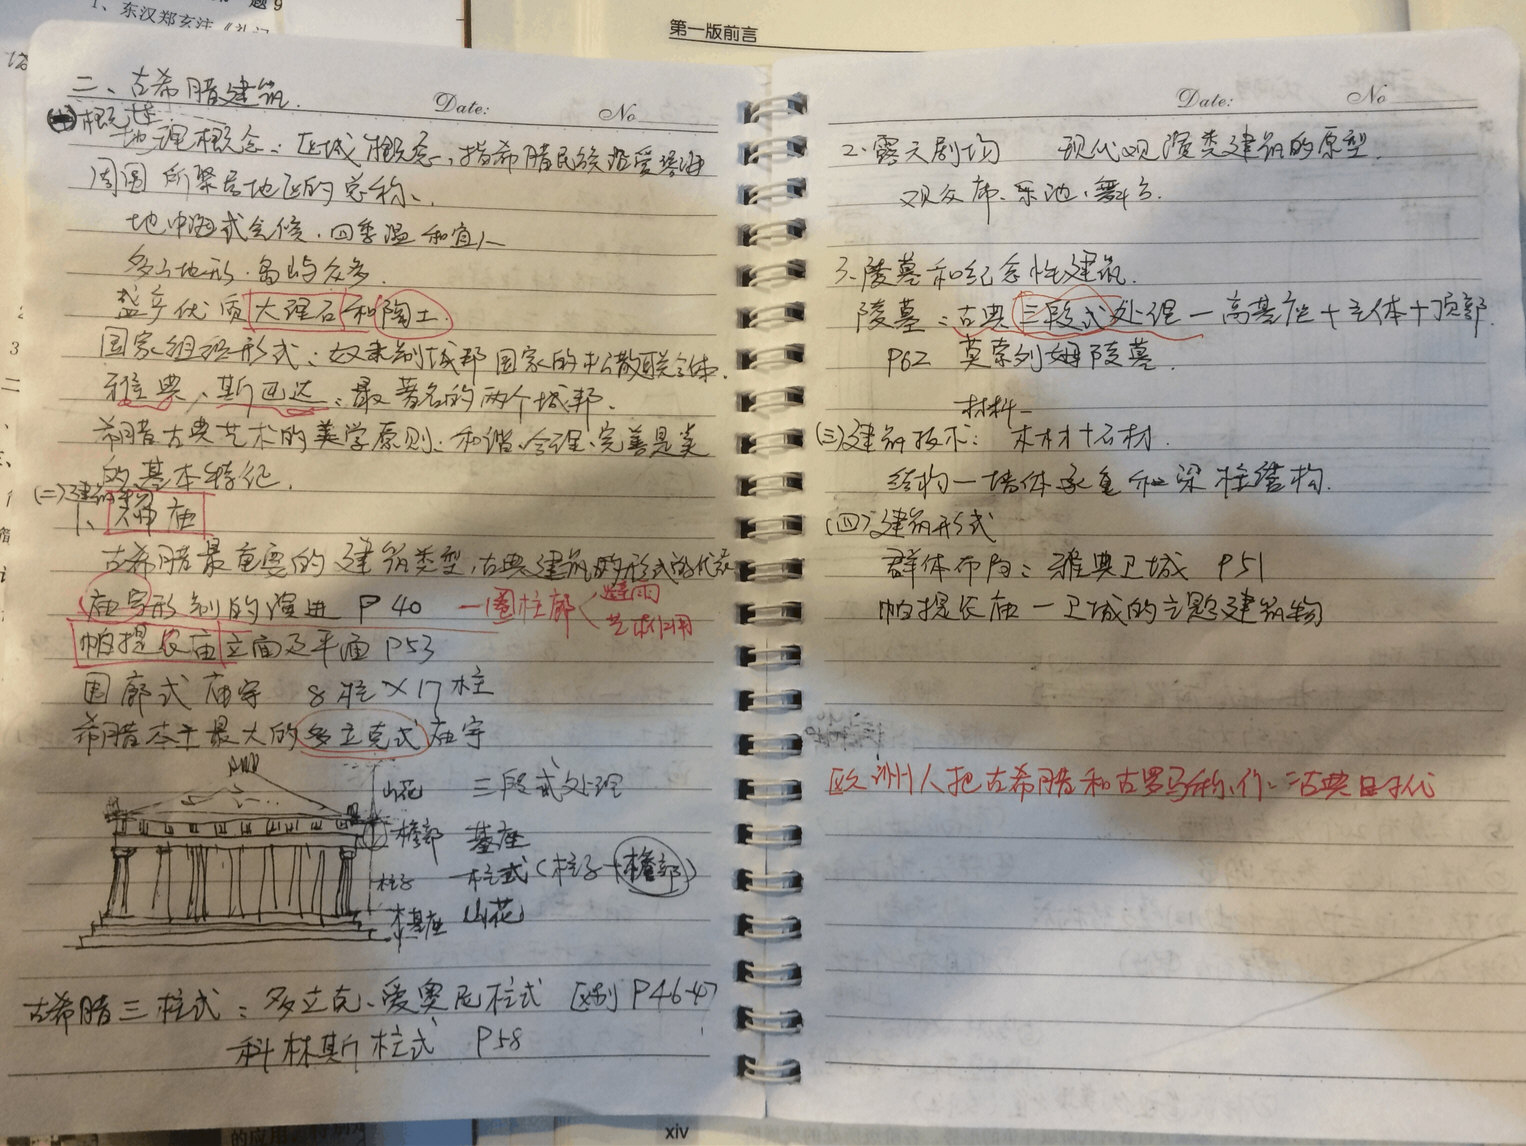 题9
1、东汉郑玄注《礼记
第一版前言
二、古希腊建筑.
Date:
No
(一)概述.
地理概念:区域概念,指希腊民族沿爱琴海
周围所聚居地区的总称、.
地中海式气候.四季温和宜人
多山地形.岛屿众多.
盛产优质大理石和陶土.
国家组织形式:奴隶制城邦国家的松散联合体.
雅典、斯巴达:最著名的两个城邦.
希腊古典艺术的美学原则:和谐、合理、完善是美
的基本特征.
(二)建筑
1、神庙
古希腊最重要的建筑类型,古典建筑的形式的代表
庙宇形制的演进 P40 —圈柱廊
避雨
艺术作用
帕提农庙立面及平面P53
围廊式庙宇 8柱×17柱
希腊本土最大的多立克式庙宇
山花 三段式处理
檐部 基座
柱子 柱式(柱子+檐部)
基座 山花
古希腊三柱式:多立克、爱奥尼柱式 区别P46-47
科林斯柱式 P58
Date:
No
2.露天剧场 现代观演类建筑的原型.
观众席.乐池.舞台.
3.陵墓和纪念性建筑.
陵墓:古典三段式处理—高基座+主体+顶部.
P62 莫索列姆陵墓.
材料—
(三)建筑技术: 木材+石材.
结构—墙体承重和梁柱结构.
(四)建筑形式
群体布局:雅典卫城 P51
帕提农庙—卫城的主题建筑物
欧洲人把古希腊和古罗马称作:古典时代
xiv